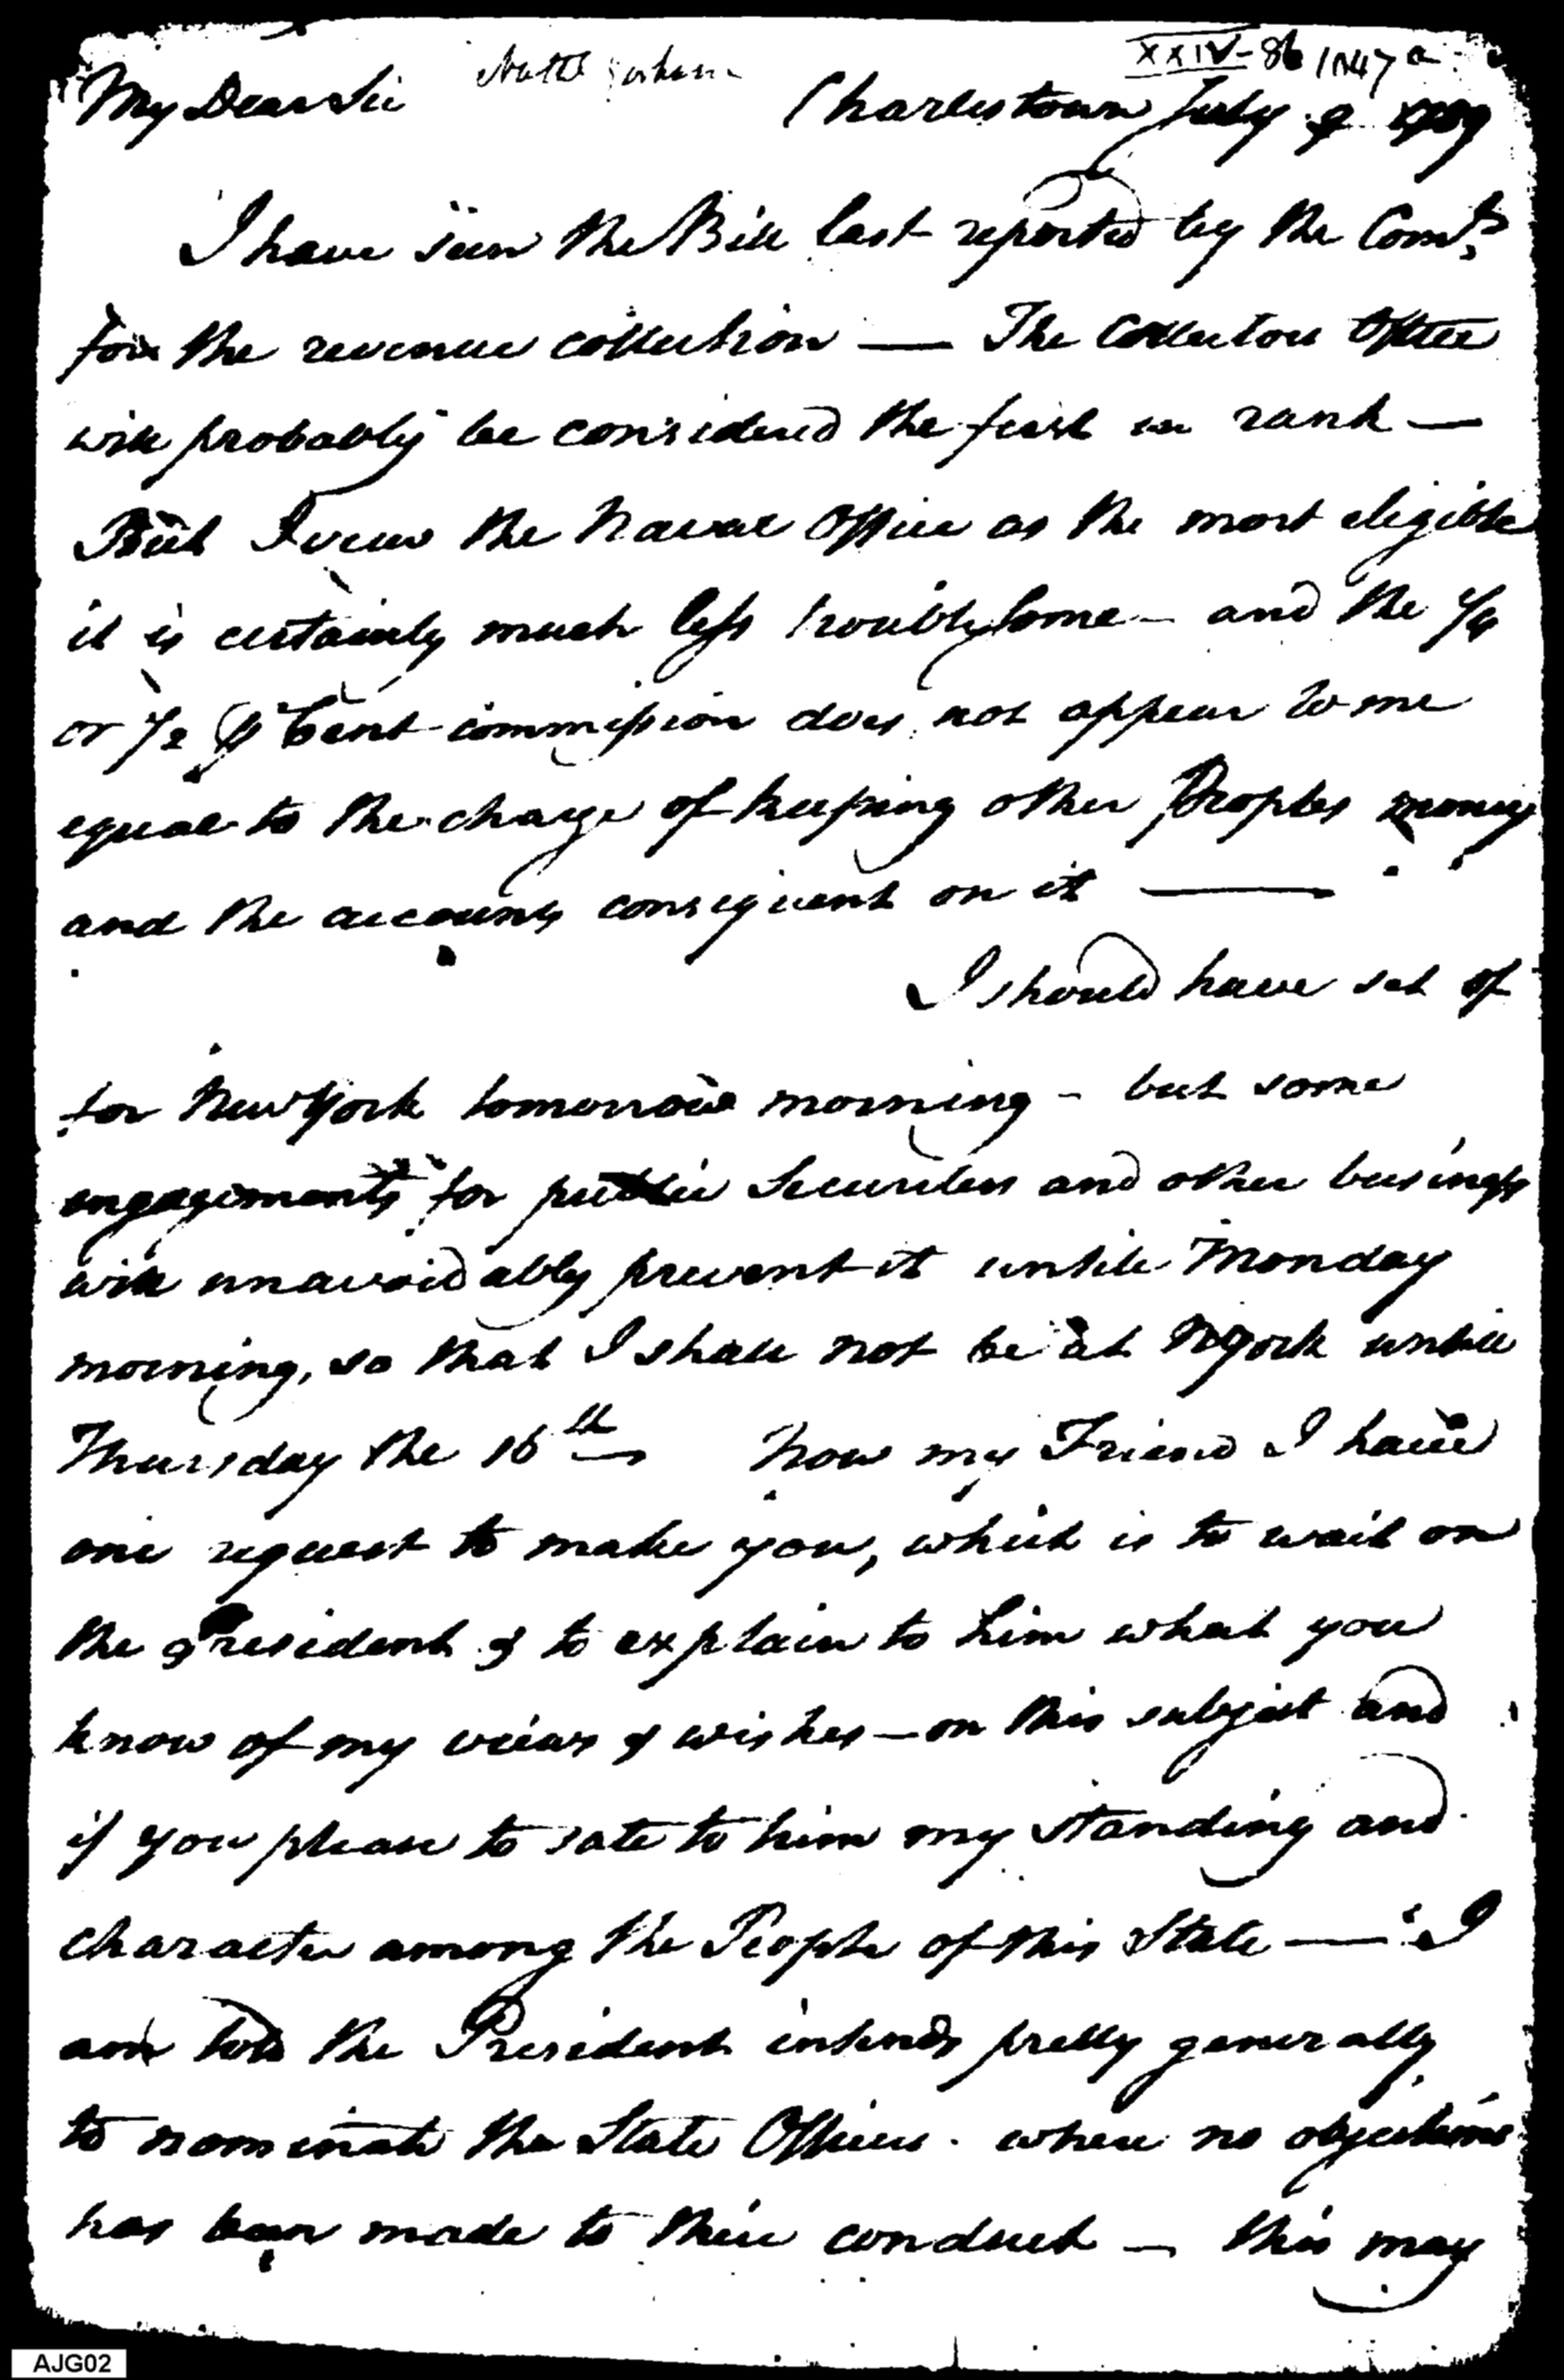 XXIV-86
My Dear Sir Charlestown July 9 1789
I have seen the Bill last reported by the Comte
for the revenue collection — The Collectors Office
will probably be considered the first in rank —
But I view the Naval Office as the most eligible
it is certainly much less troublesome — and the 1/4
or 1/2 ⅌ Cent commission does not appear to me
equal to the charge of keeping other Peoples money
and the accounts consequent on it ———
I should have set of
for New York tomorrow morning - but some
engagements for public Securities and other business
will unavoidably prevent it untill Monday
morning, so that I shall not be at NYork untill
Thursday the 16th Now my Friend I have
one request to make you, which is to wait on
the President & to explain to him what you
know of my views & wishes — on this subject and
if you please to sate to him my standing and
character among the People of this State — I
am told the President intends pretty generally
to nominate the State Officers . where no objections
has been made to their conduct — this may
AJG02